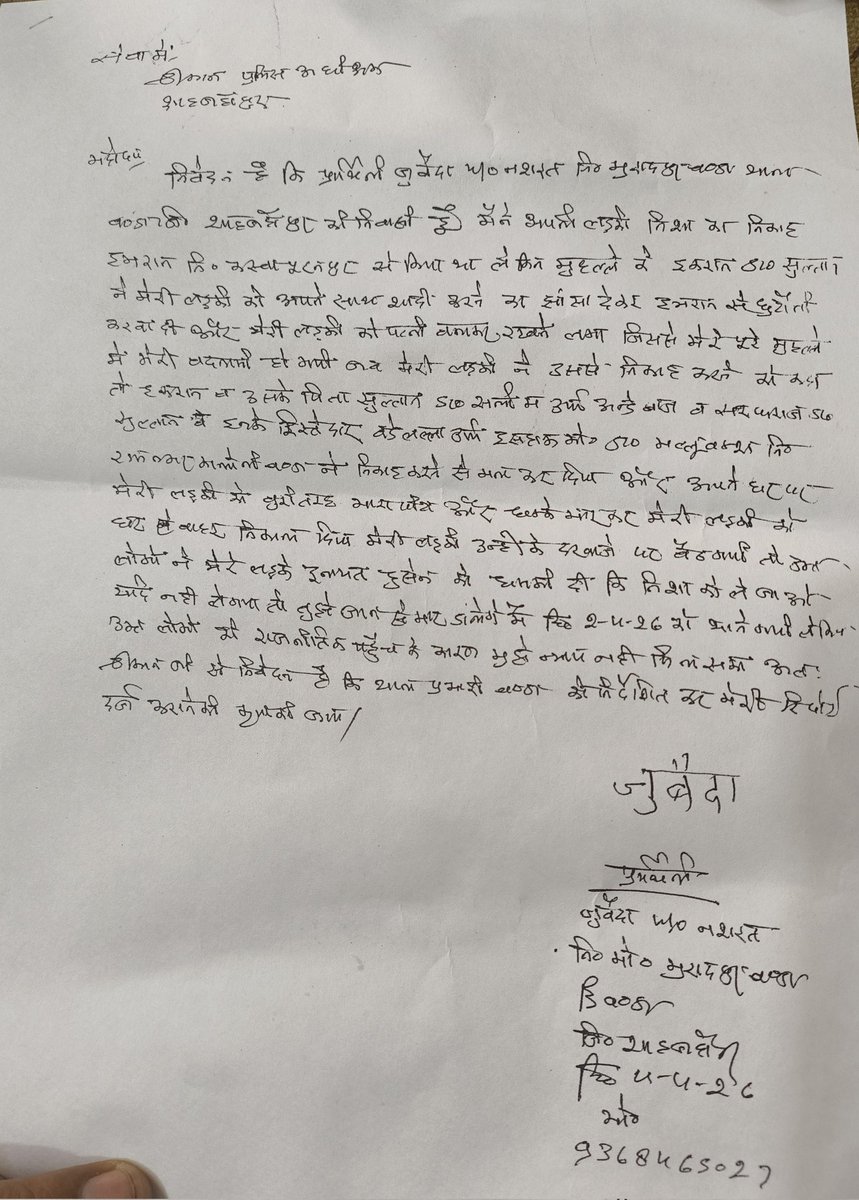 सेवा में,
श्रीमान पुलिस अधीक्षक
शाहजहाँपुर
महोदय,
निवेदन है कि प्रार्थिनी जुबैदा w/o नशरत नि० थाना
की निवासी हूँ मैंने अपनी लड़की निशा का निकाह
इमरान नि० कस्बा से किया था लेकिन मुहल्ले के इकरान S/o सुल्तान
ने मेरी लड़की को अपने साथ शादी करने का झांसा देकर इमरान से
करवा दी और मेरी लड़की को पत्नी बनाकर रखने लगा जिससे मेरे पूरे मुहल्ले
में मेरी बदनामी हो गयी जब मेरी लड़की ने उससे निकाह करने को कहा
तो इकरान व उसके पिता सुल्तान S/o सलीम उर्फ अन्डे बाज व S/o
सुल्तान व इनके रिस्तेदार बडे लल्ला उर्फ S/o नि०
ने निकाह करने से मना कर दिया और अपने घर पर
मेरी लड़की को बुरी तरह मारा पीटा और धक्के मारकर मेरी लड़की को
घर से बाहर निकाल दिया मेरी लड़की उन्ही के दरवाजे पर बैठ गयी तो उक्त
लोगो ने मेरे लड़के इनायत हुसैन को धमकी दी कि निशा को ले जाओ
यदि नही ले गया तो तुझे जान से मार डालेगे मैं दि० 2-4-26 को थाने गयी लेकिन
उक्त लोगो की राजनीतिक पहुँच के कारण मुझे न्याय नही मिल सका अतः
श्रीमान जी से निवेदन है कि थाना प्रभारी को निर्देशित कर मेरी रिपोर्ट
दर्ज कराने की कृपा की जाय/
जुबैदा
प्रार्थिनी
जुबैदा w/o नशरत
नि० मो०
जि० शाहजहाँपुर
दि० 4-4-26
मो०
9368465027